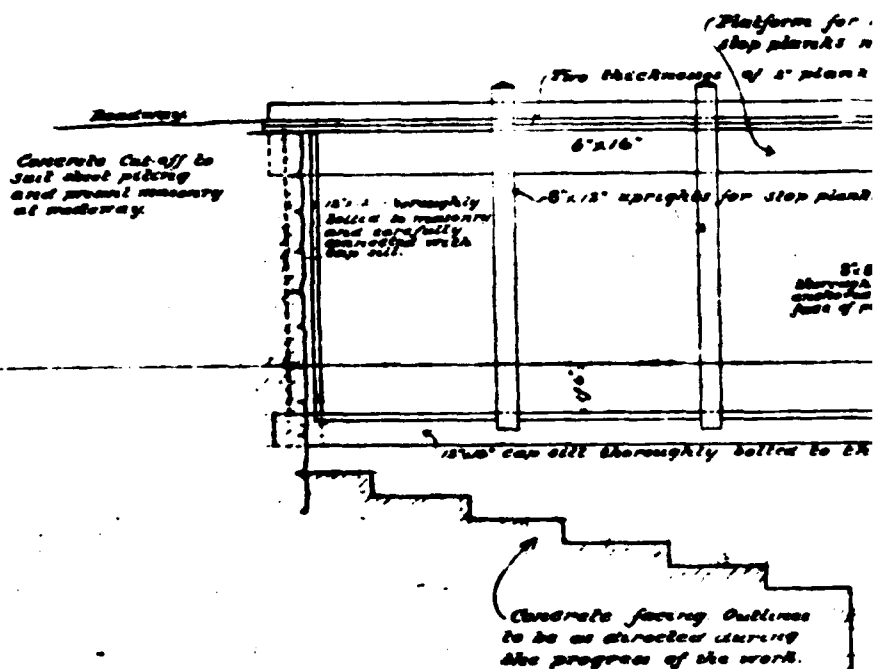 (Platform for
stop planks
Two thicknesses of 2" plank
Roadway.
6"x16"
Concrete Cut-off to
suit sheet piling
and present masonry
at roadway.
thoroughly
bolted to masonry
and carefully
connected with
cap sill.
6"x12" uprights for stop plank
thorough
face of
cap sill thoroughly bolted to th
Concrete facing Outlines
to be as directed during
the progress of the work.